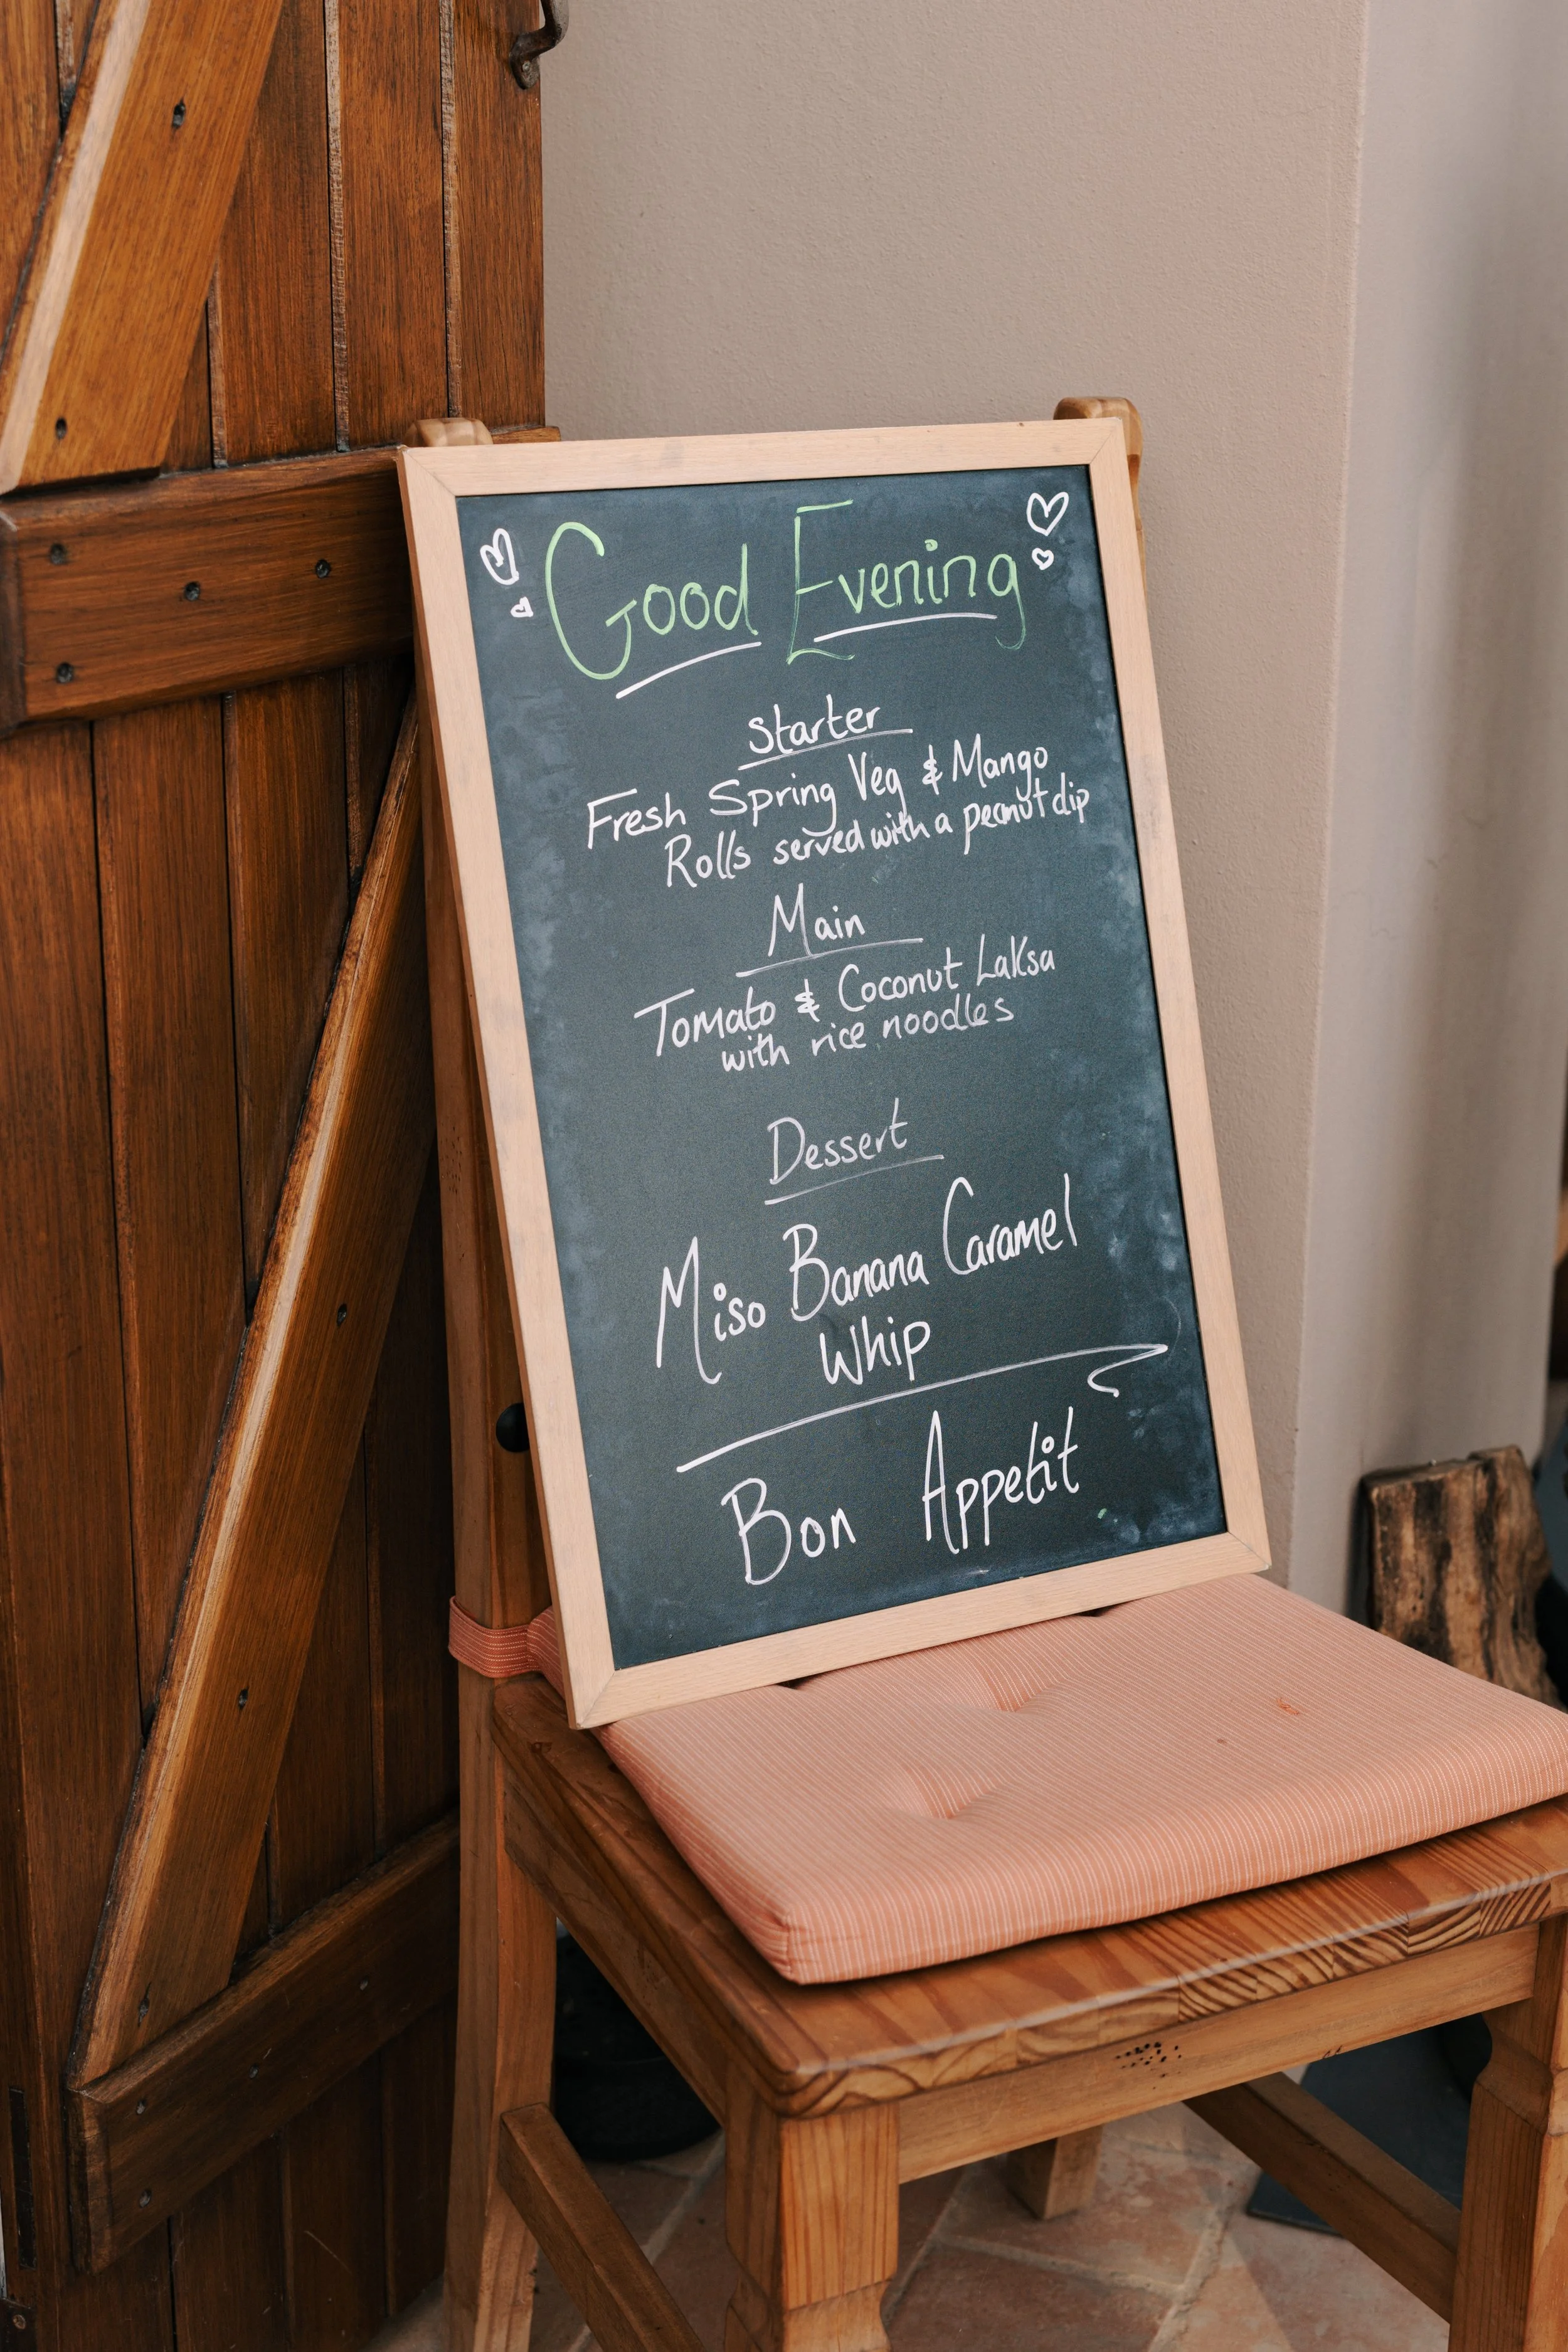 Good Evening
Starter
Fresh Spring Veg & Mango
Rolls served with a peanut dip
Main
Tomato & Coconut Laksa
with rice noodles
Dessert
Miso Banana Caramel
Whip
Bon Appetit